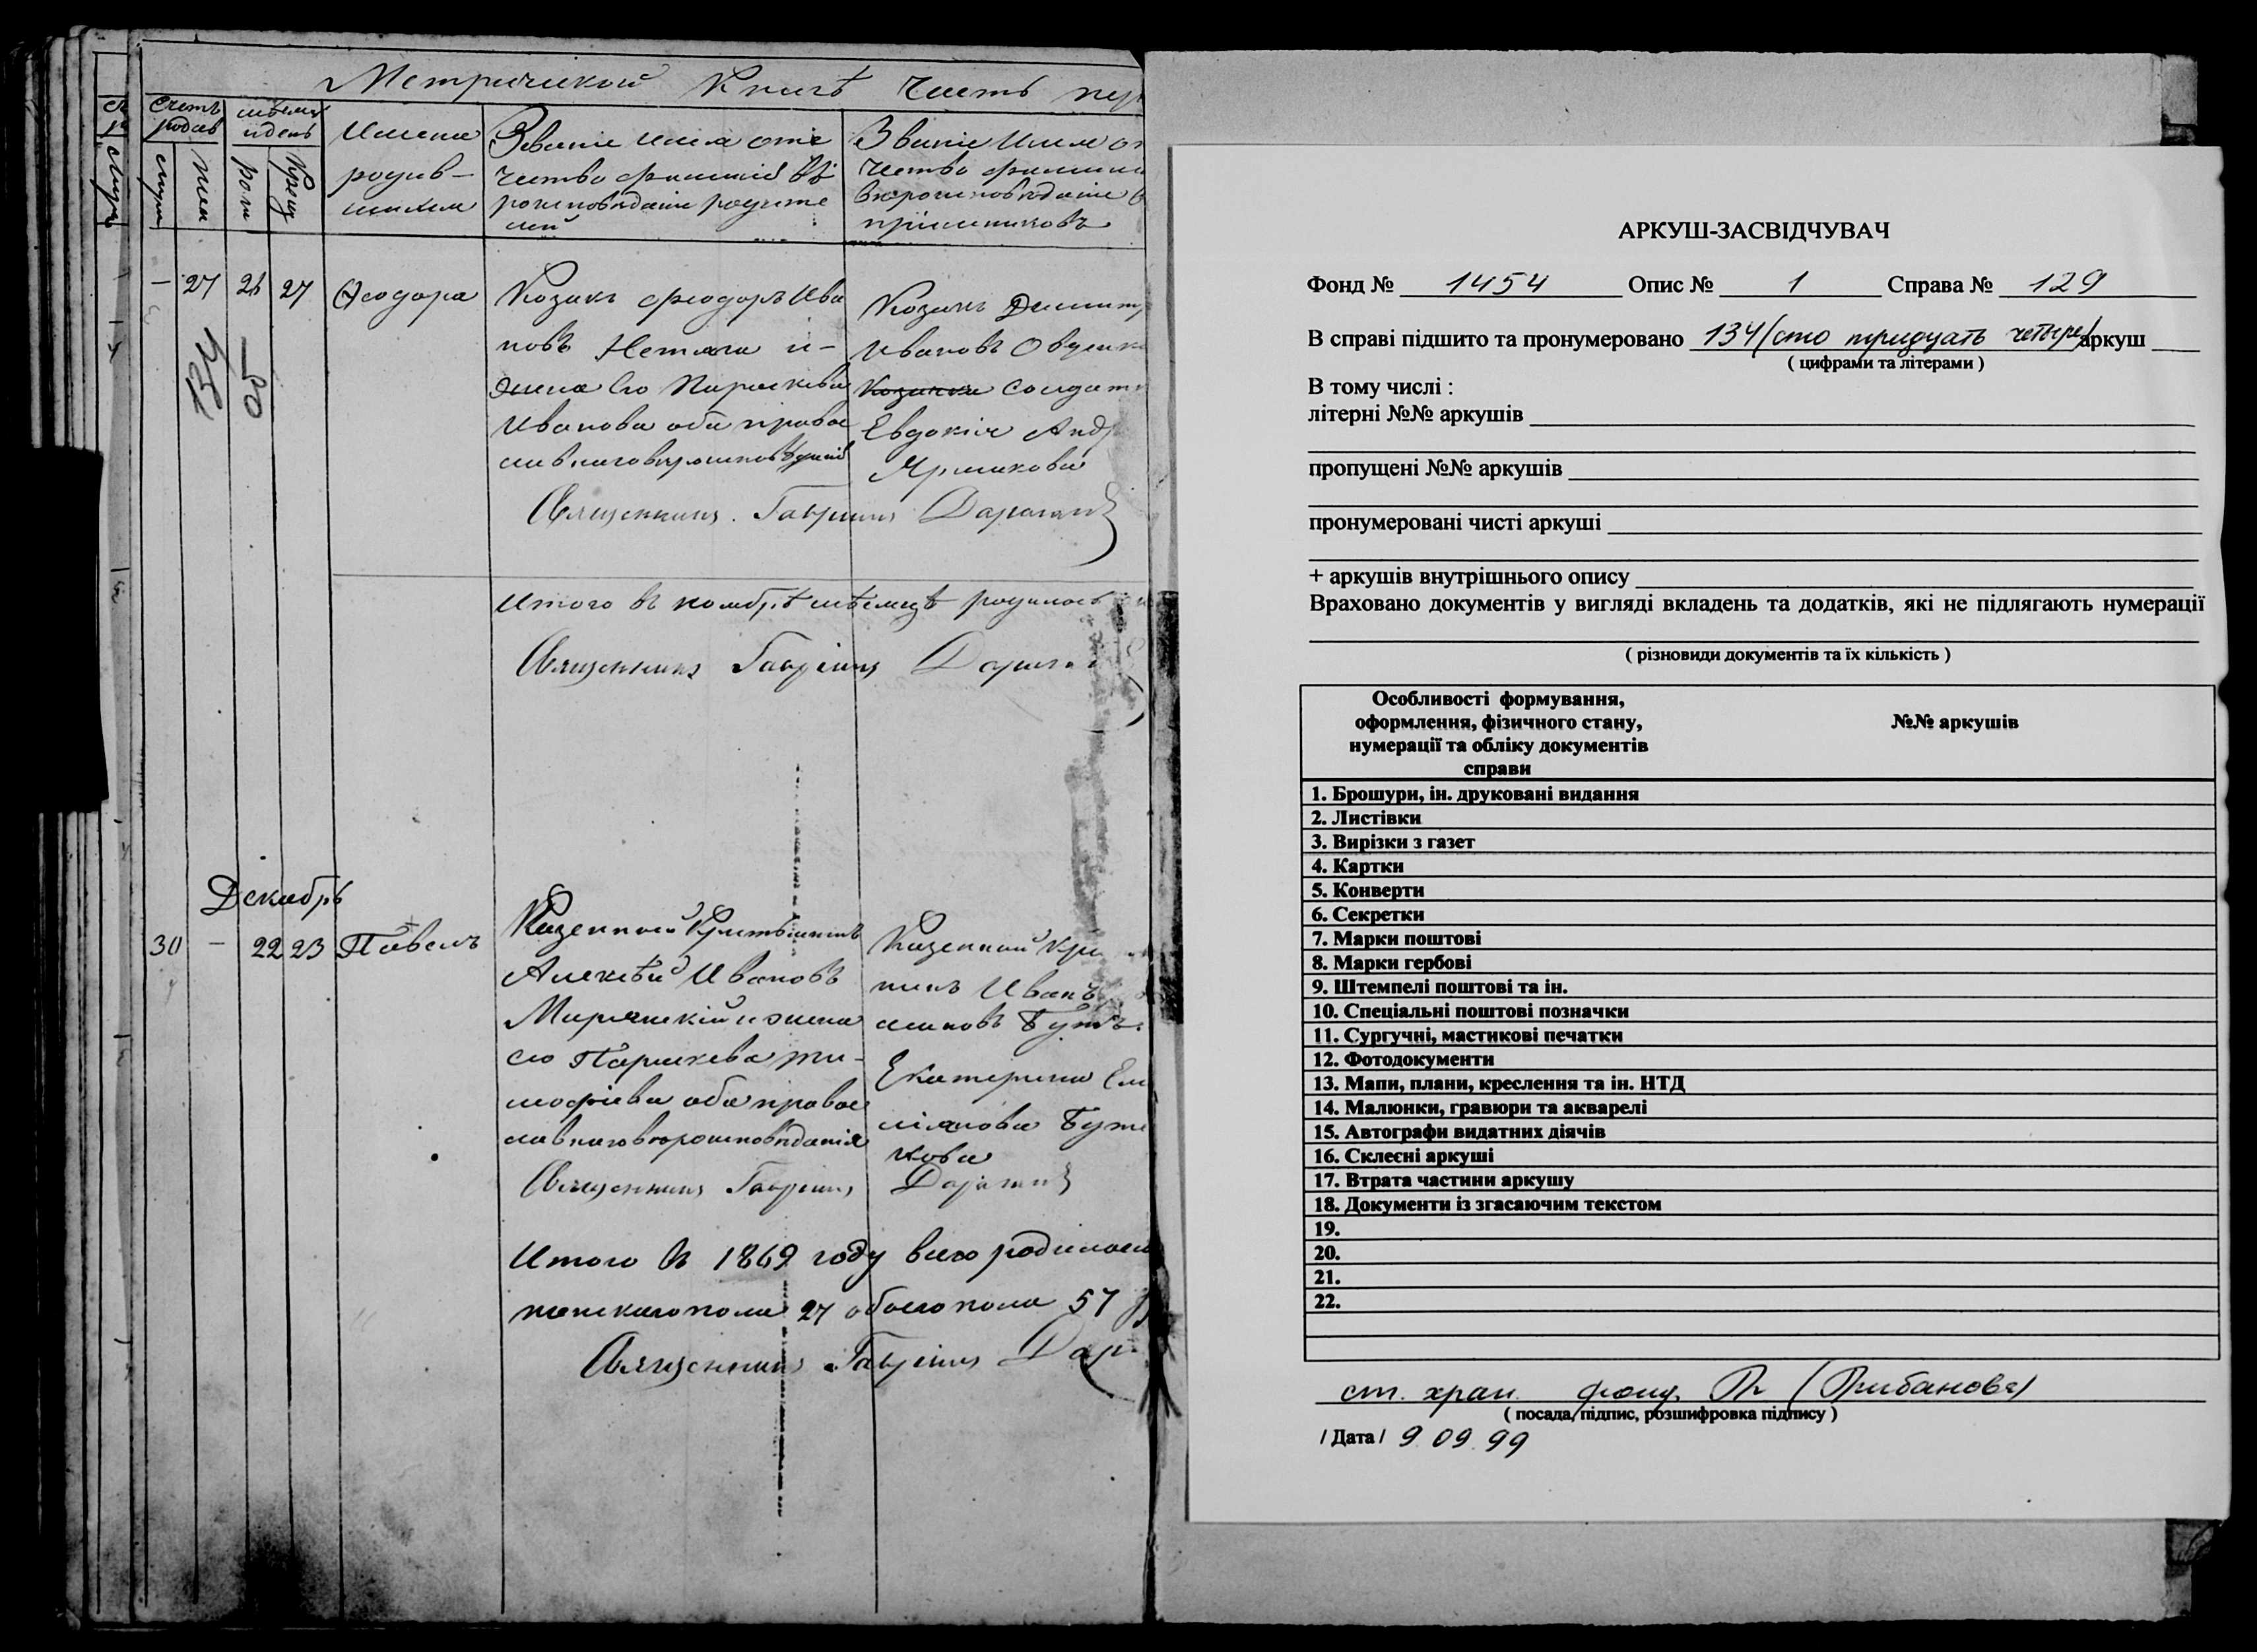 Метрической Книгѣ Часть пер
Счетъ
родив
мѣсяц
и день
Имена
родив-
шихся
Званіе имя оте
чество фамилія вѣ
роисповѣданіе родите
лей
Званіе Имя от
чество фамилия
вѣроисповѣданіе
пріемниковъ
муж
жен
рож
Крещ
— 27 26 27
Ѳеодора
Козакъ Ѳеодоръ Ива
новъ Нетяга и-
жена его Параскева
Иванова оба правос
лавнаго вѣроисповѣданія
Козакъ Димит
Ивановъ Овдіенк
Козачка Солдат
Евдокія Анд
Ярмакова
134
Священникъ Гавріилъ Дараганъ
Итого въ ноябрѣ мѣсяцѣ родилось
Священникъ Гавріилъ Дараган
Декабрь
30 — 22 23 Павелъ
Казенной Крестьянинъ
Алексѣй Ивановъ
Мирянскій и жена
его Параскева Ти-
мофіева оба правос
лавнаго вѣроисповѣданія
Казенной Кре
нинъ Иванъ
Екатерина Ем
ліянова Бут
кова
Священникъ Гавріилъ Дараганъ
Итого въ 1869 году всего родилось
женскаго пола 27 обоего пола 57
Священникъ Гавріилъ Дар
АРКУШ-ЗАСВІДЧУВАЧ
Фонд № 1454 Опис № 1 Справа № 129
В справі підшито та пронумеровано 134 (сто тридцать четыре) аркуш
( цифрами та літерами )
В тому числі :
літерні №№ аркушів
пропущені №№ аркушів
пронумеровані чисті аркуші
+ аркушів внутрішнього опису
Враховано документів у вигляді вкладень та додатків, які не підлягають нумерації
( різновиди документів та їх кількість )
Особливості формування,
оформлення, фізичного стану,
нумерації та обліку документів
справи
№№ аркушів
1. Брошури, ін. друковані видання
2. Листівки
3. Вирізки з газет
4. Картки
5. Конверти
6. Секретки
7. Марки поштові
8. Марки гербові
9. Штемпелі поштові та ін.
10. Спеціальні поштові позначки
11. Сургучні, мастикові печатки
12. Фотодокументи
13. Мапи, плани, креслення та ін. НТД
14. Малюнки, гравюри та акварелі
15. Автографи видатних діячів
16. Склеєні аркуші
17. Втрата частини аркушу
18. Документи із згасаючим текстом
19.
20.
21.
22.
ст. хран. фонд.
( посада, підпис, розшифровка підпису )
/ Дата / 9.09.99